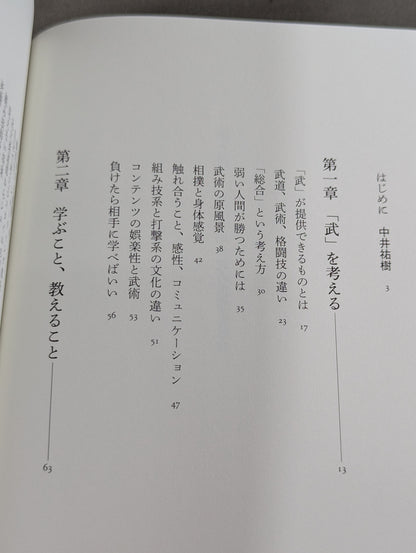 はじめに　中井祐樹　3
第一章　「武」を考える――13
「武」が提供できるものとは　17
武道、武術、格闘技の違い　23
「総合」という考え方　30
弱い人間が勝つためには　35
武術の原風景　38
相撲と身体感覚　42
触れ合うこと、感性、コミュニケーション　47
組み技系と打撃系の文化の違い　51
コンテンツの娯楽性と武術　53
負けたら相手に学べばいい　56
第二章　学ぶこと、教えること――63